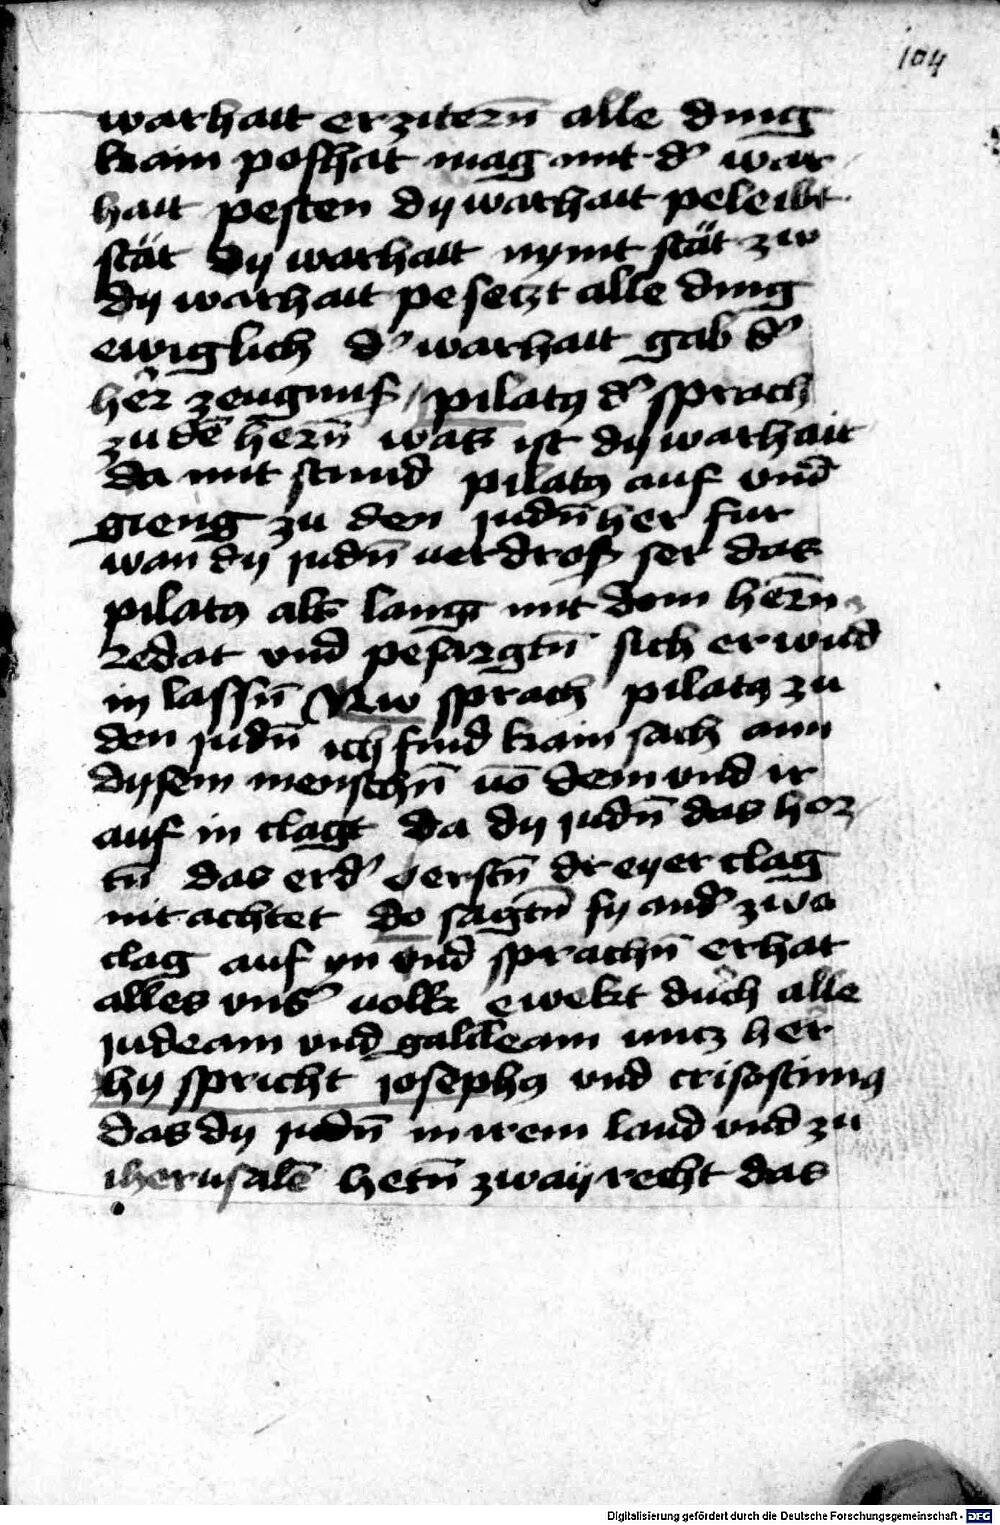 104
warhait erzitern̄ alle ding
kain poshait mag mit d' war
hait pesten dy warhait peleibt
stät dy warhait nymt stät zw
dy warhait pesetzt alle ding
ewiglich d' warhait gab d'
her̄ zeugnuß / pilatꝰ d' sprach
zu dē hern̄ was ist dy warhait
da mit stund pilatꝰ auf vnd̄
gieng zu den judn̄ her fur
wan dy judn̄ verdroß ser das
pilatꝰ als lang mit dem hern̄
redat vnd pesargtn̄ sich er wurd
in lassn̄ Nw sprach pilatꝰ zu
den judn̄ ich find kain sach ann
dysem menschn̄ vō dem vnd ir
auf in clagt da dy judn̄ das hor
tn̄ das er d' erstn̄ dreyer clag
nit achtet do sagtn̄ sy and' zwo
clag auf yn vnd sprachn̄ er hat
alles vns' volk ewekt durch alle
judeam vnd galileam vntz her
hy spricht josephꝰ vnd crisostimꝰ
das dy judn̄ in irem land vnd zu
iherusalē hetn̄ zway recht das
Digitalisierung gefördert durch die Deutsche Forschungsgemeinschaft - DFG